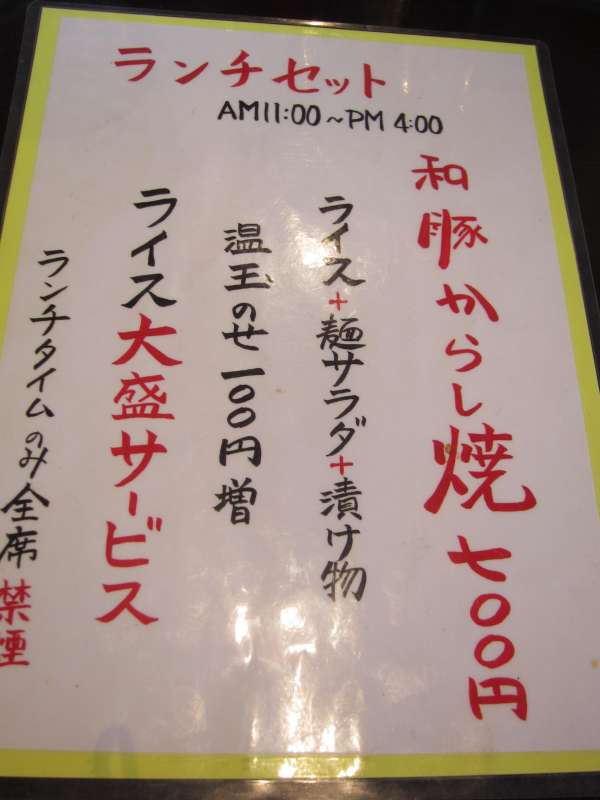 ランチセット
AM11:00～PM 4:00
和豚からし焼 七〇〇円
ライス+麺サラダ+漬け物
温玉のせ 一〇〇円増
ライス大盛サービス
ランチタイムのみ全席禁煙